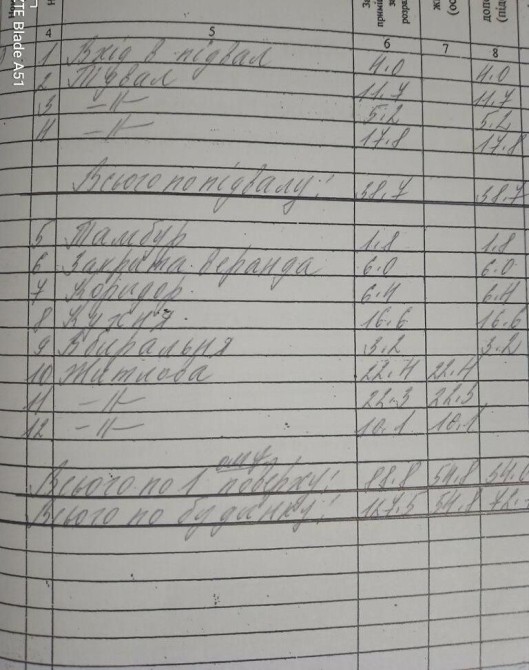 ZTE Blade A51
4 5 6 7 8
1 Вхід в підвал 4.0 4.0
2 Підвал 11.7 11.7
3 –II– 5.2 5.2
4 –II– 17.8 17.8
Всього по підвалу: 38.7 38.7
5 Тамбур 1.8 1.8
6 Закрита веранда 6.0 6.0
7 Коридор 6.4 6.4
8 Кухня 16.6 16.6
9 Вбиральня 3.2 3.2
10 Житлова 22.4 22.4
11 –II– 22.3 22.3
12 –II– 10.1 10.1
Всього по 1 ому поверху: 88.8 54.8
Всього по будинку: 127.5 54.8